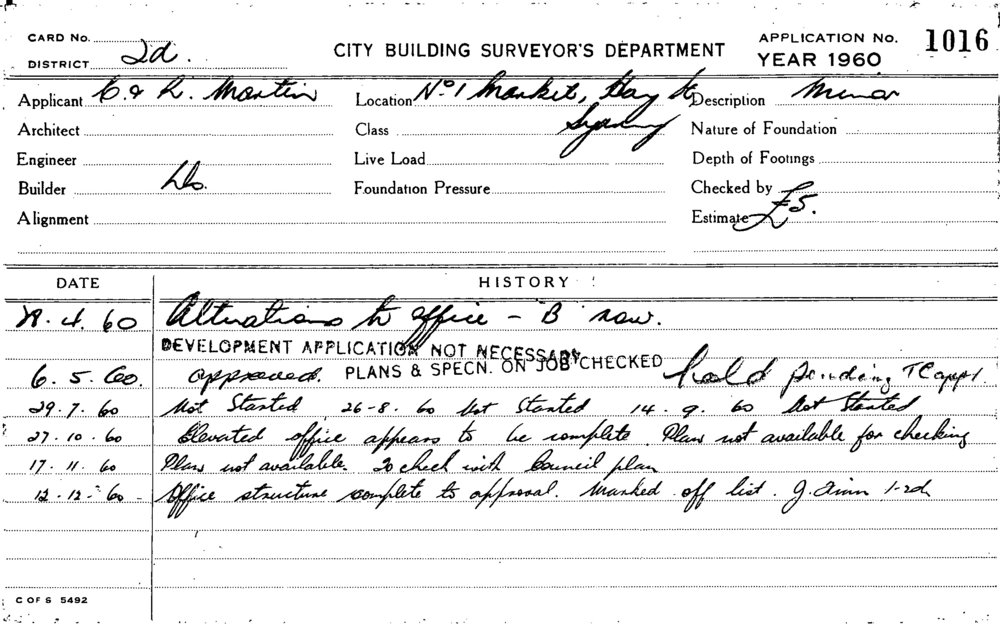 CARD No.
DISTRICT 2d.
CITY BUILDING SURVEYOR'S DEPARTMENT
APPLICATION No. 1016
YEAR 1960
Applicant C. & R. Martin Location No 1 Market, Hay St Description Minor
Architect Class Sydney Nature of Foundation
Engineer Live Load Depth of Footings
Builder Do. Foundation Pressure Checked by
Alignment Estimate £5.
DATE HISTORY
4. 60 Alterations to office - B row.
DEVELOPMENT APPLICATION NOT NECESSARY
PLANS & SPECN. ON JOB CHECKED
6. 5. 60. approved. hold pending TC appl.
29. 7. 60 Not Started 26-8. 60 Not Started 14. 9. 60 Not Started
27. 10. 60 Elevated office appears to be complete. Plan not available for checking
17. 11. 60 Plan not available. To check with Council plan
12. 12. 60 Office structure complete to approval. Marked off list. 1-2d
C OF S 5492